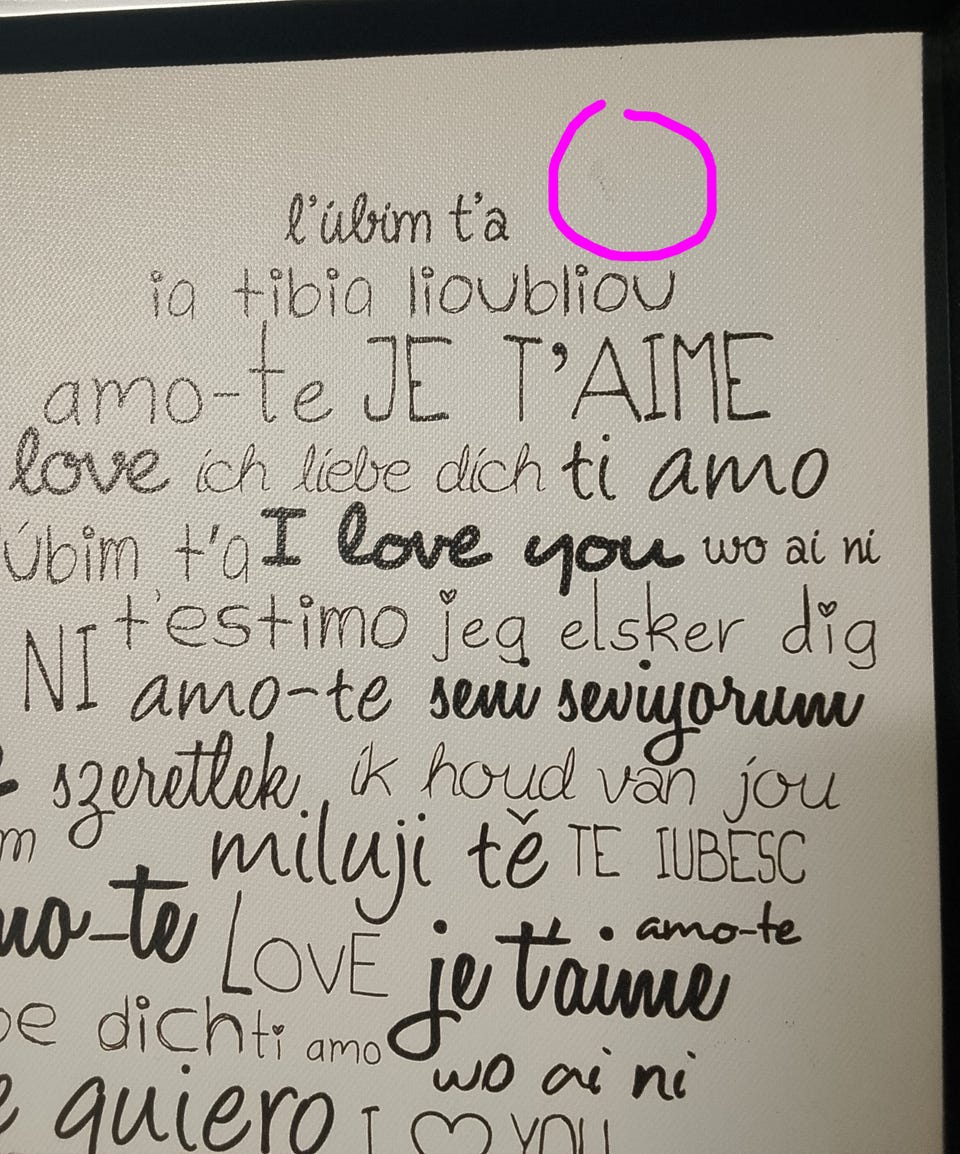 l'úbim t'a
ia tibia lioubliou
amo-te JE T'AIME
love ich liebe dich ti amo
úbim t'a I love you wo ai ni
t'estimo jeg elsker dig
NI amo-te seni seviyorum
szeretlek ik houd van jou
m miluji tě TE IUBESC
mo-te LOVE je t'aime amo-te
be dich ti amo
wo ai ni
e quiero I ♡ YOU